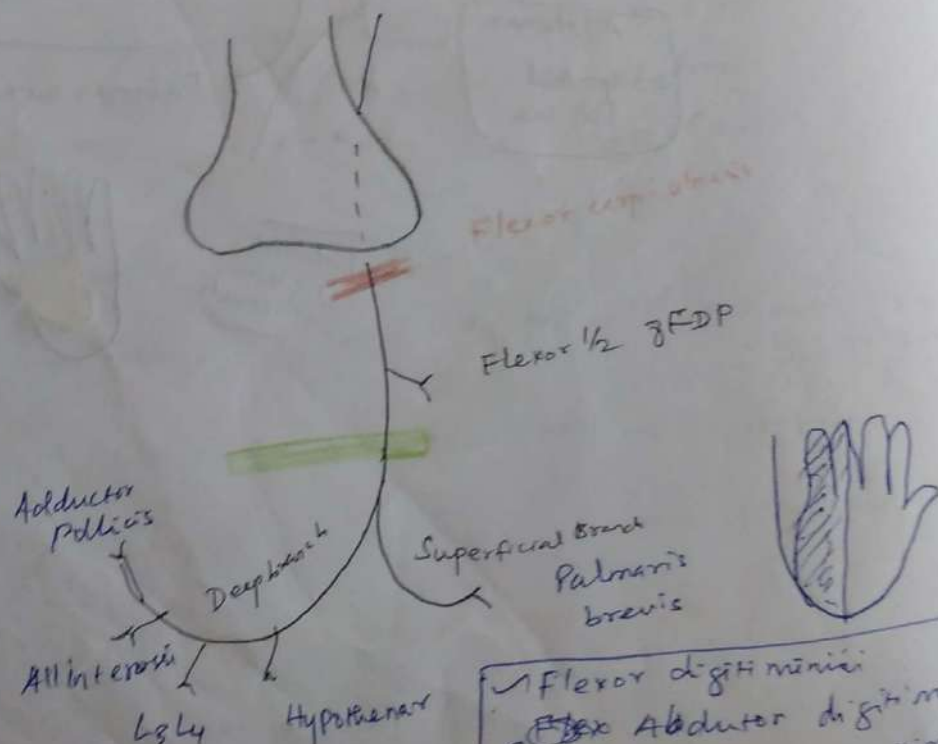 Flexor 1/2 of FDP
Adductor
Pollicis
Deep branch
Superficial Branch
Palmaris
brevis
All interossii
L3 L4
Hypothenar
Flexor digiti minimi
Abductor digiti m